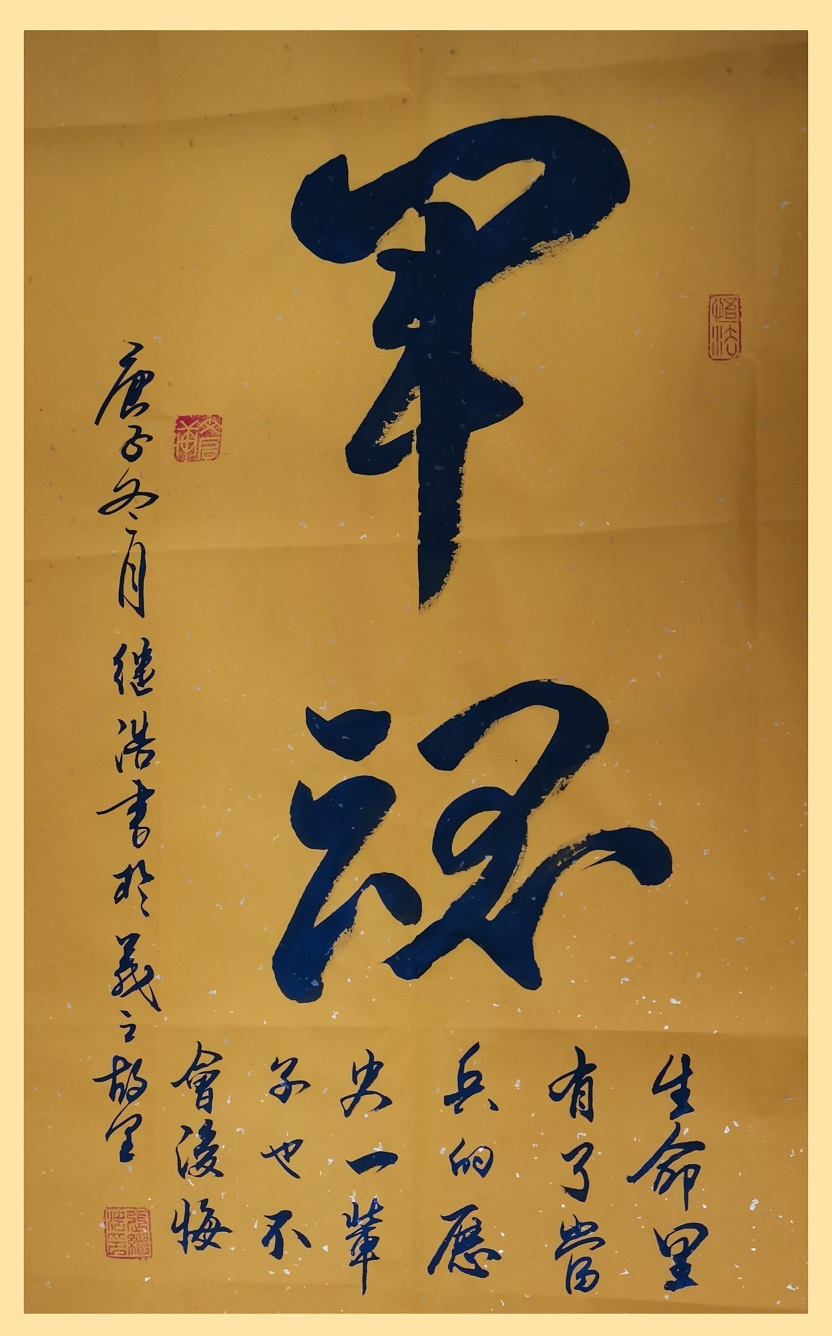 军魂
生命里
有了當
兵的歷
史一輩
子也不
會後悔
庚子冬月继浩书於羲之故里
悟法